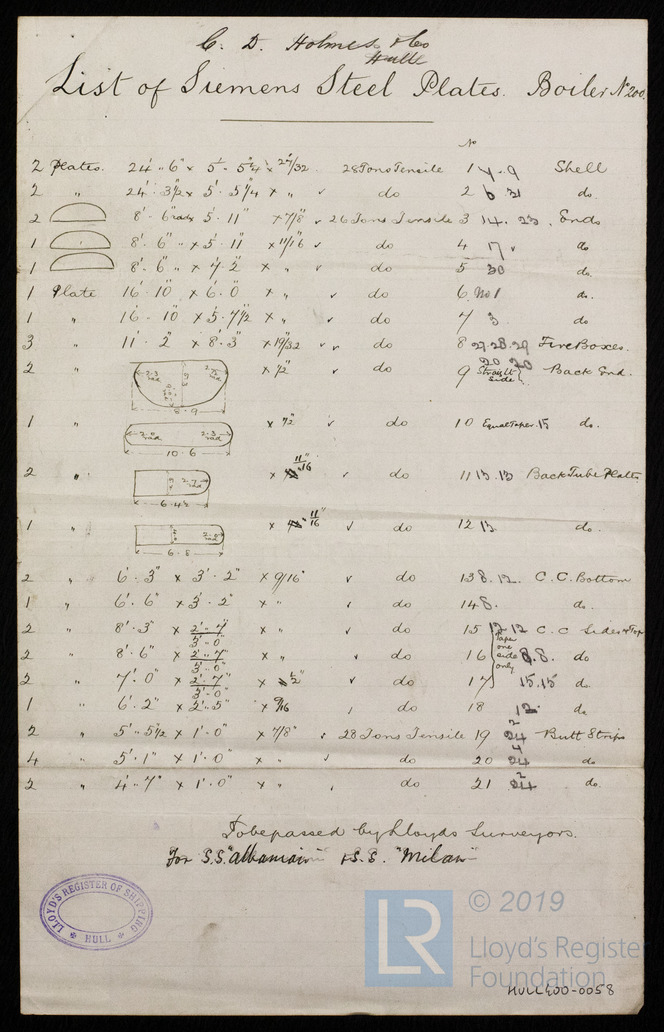 C. D. Holmes & Co
Hull
List of Siemens Steel Plates. Boiler No 200.
No
2 Plates. 24'. 6" x 5'. 5¾ x 27/32 28 Tons Tensile 1 4. 9 Shell
2 " 24'. 3½ x 5'. 5¼ x " do 2 6 21 do.
2 8'. 6" rad x 5'. 11" x 7/8 26 Tons Tensile 3 14. 23. Ends
1 8'. 6" " x 5'. 11 x 11/16 do 4 17 do
1 8'. 6" " x 4'. 2" x " do 5 30 do.
1 Plate 16'. 10" x 6'. 0" x " do 6 No 1 do.
1 " 16'. 10" x 5'. 7½ x " do 7 3 do
3 " 11'. 2" x 8'. 3" x 19/32 do 8 27. 28. 29 Fire Boxes.
2 " x ½" do 9 20 20 Straight side Back End.
8. 9
1 " x ½" do 10 Equal Taper. 15 do.
10. 6
2 " x 11/16" do 11 13. 13 Back Tube Plates
6. 4½
1 " x 11/16" do 12 13. do.
6. 8
2 " 6'. 3" x 3'. 2" x 9/16" do 13 8. 12. C.C. Bottom
1 " 6'. 6" x 3'. 2" x " do 14 8. do.
2 " 8'. 3" x 2'. 7" 3'. 0" x " do 15 12 12 C.C Sides & Top
Taper one side only
2 " 8'. 6" x 2'. 7" 3'. 0" x " do 16 8. 8. do
2 " 7'. 0" x 2'. 7" 3'. 0" x ½" do 17 15. 15 do
1 " 6'. 2" x 2'. 5" x 9/16 do 18 12. do
2 " 5'. 5½ x 1'. 0" x 7/8" 28 Tons Tensile 19 2 24 Butt Strips
4 " 5'. 1" x 1'. 0" x " do 20 4 24 do
2 " 4'. 7" x 1'. 0" x " do 21 2 24 do.
To be passed by Lloyds Surveyors.
For S.S. "Albanian" & S.S. "Milan"
LLOYD'S REGISTER OF SHIPPING
HULL
© 2019
LR
Lloyd's Register
Foundation
HUL400-0058